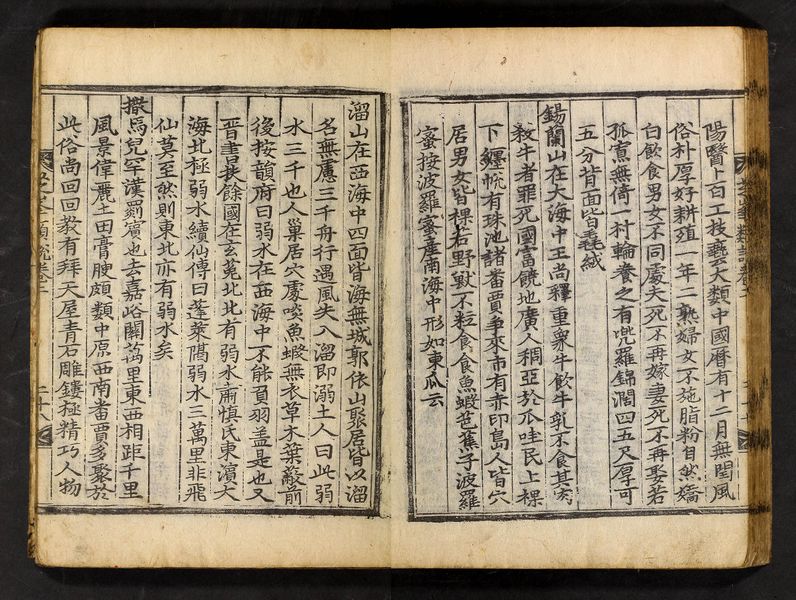 陽醫卜百工技藝大類中國曆有十二月無閏風
俗朴厚好耕殖一年二熟婦女不施脂粉自然嬌
白飮食男女不同處夫死不再嫁妻死不再娶若
孤寡無倚一村輪養之有兜羅錦濶四五尺厚可
五分背面皆毳絨
錫蘭山在大海中王尚釋重衆牛飮牛乳不食其肉
殺牛者罪死國富饒地廣人稠亞於瓜哇民上裸
下纏帨有珠池諸番賈爭來市有赤印島人皆穴
居男女皆裸若野獸不粒食食魚蝦芭蕉子波羅
蜜按波羅蜜產南海中形如東瓜云
溜山在西海中四面皆海無城郭依山聚居皆以溜
名無慮三千舟行遇風失入溜即溺土人曰此弱
水三千也人巢居穴處啖魚蝦無衣草木葉蔽前
後按韻府曰弱水在西海中不能負羽盖是也又
晉書曰扶餘國在玄菟北北有弱水肅愼氏東濱大
海北極弱水續仙傳曰蓬萊隔弱水三萬里非飛
仙莫至然則東北亦有弱水矣
撒馬兒罕漢罽賓也去嘉峪關萬里東西相距千里
風景偉麗土田膏腴頗類中原西南番賈多聚於
此俗尚回回敎有拜天屋靑石雕鏤極精巧人物